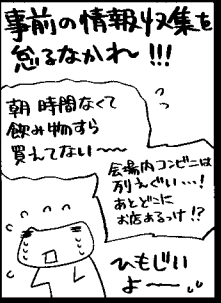 事前の情報収集を
怠るなかれ!!!
朝時間なくて
飲み物すら
買えてない〜〜
会場内コンビニは
列えぐい…!
あとどこに
お店あるっけ!?
ひもじい
よ〜〜